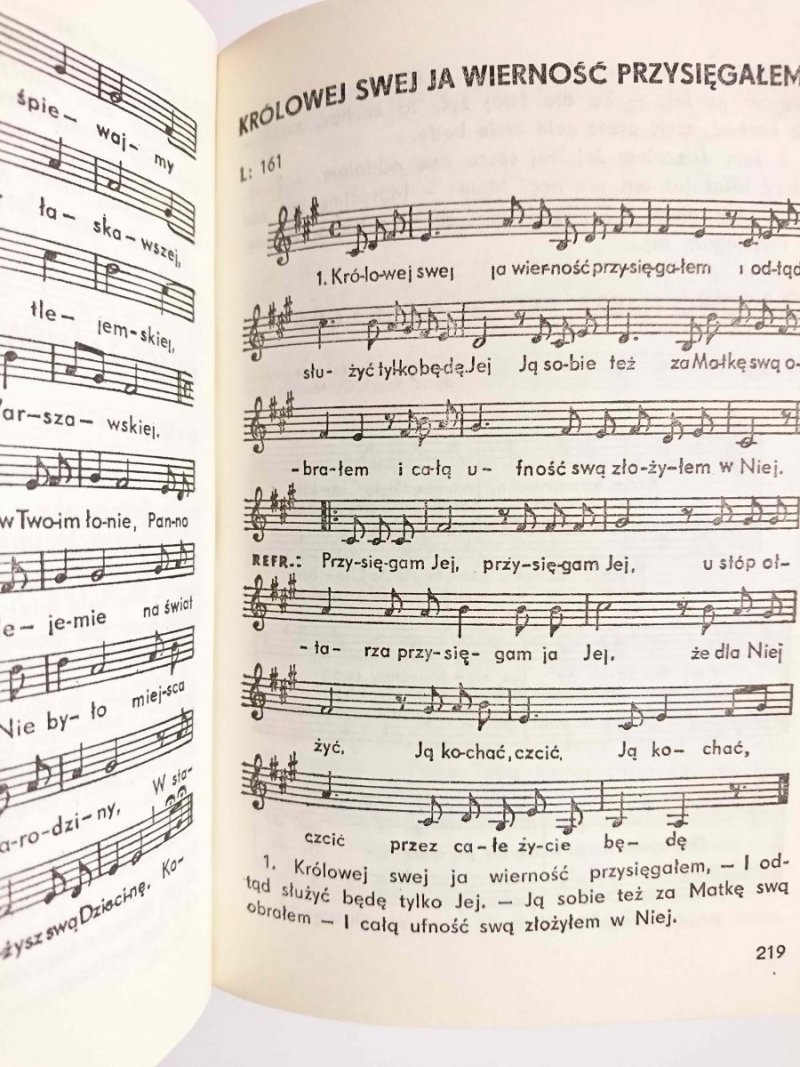 śpie- waj- my
ła- ska- wszej,
tle- jem- skiej,
ar-sza- wskiej.
w Two-im ło-nie, Pan-no
je-mie na świat
Nie by- ło miej-sca
a-ro-dzi-ny, W sta-
-żysz swą Dzieci-nę. Ko-
KRÓLOWEJ SWEJ JA WIERNOŚĆ PRZYSIĘGAŁEM
L: 161
1. Kró-lo-wej swej ja wier-ność przy-się-ga-łem i od-tąd
słu- żyć tylko będę Jej Ją so-bie też za Matkę swą o-
-brałem i ca-łą u- fność swą zło-ży-łem w Niej.
REFR.: Przy-się-gam Jej, przy-się-gam Jej, u stóp oł-
-ta- rza przy-się- gam ja Jej, że dla Niej
żyć, Ją ko-chać, czcić, Ją ko- chać,
czcić przez ca-łe ży-cie bę- dę
1. Królowej swej ja wierność przysięgałem, — I od-
tąd służyć będę tylko Jej. — Ją sobie też za Matkę swą
obrałem — I całą ufność swą złożyłem w Niej.
219